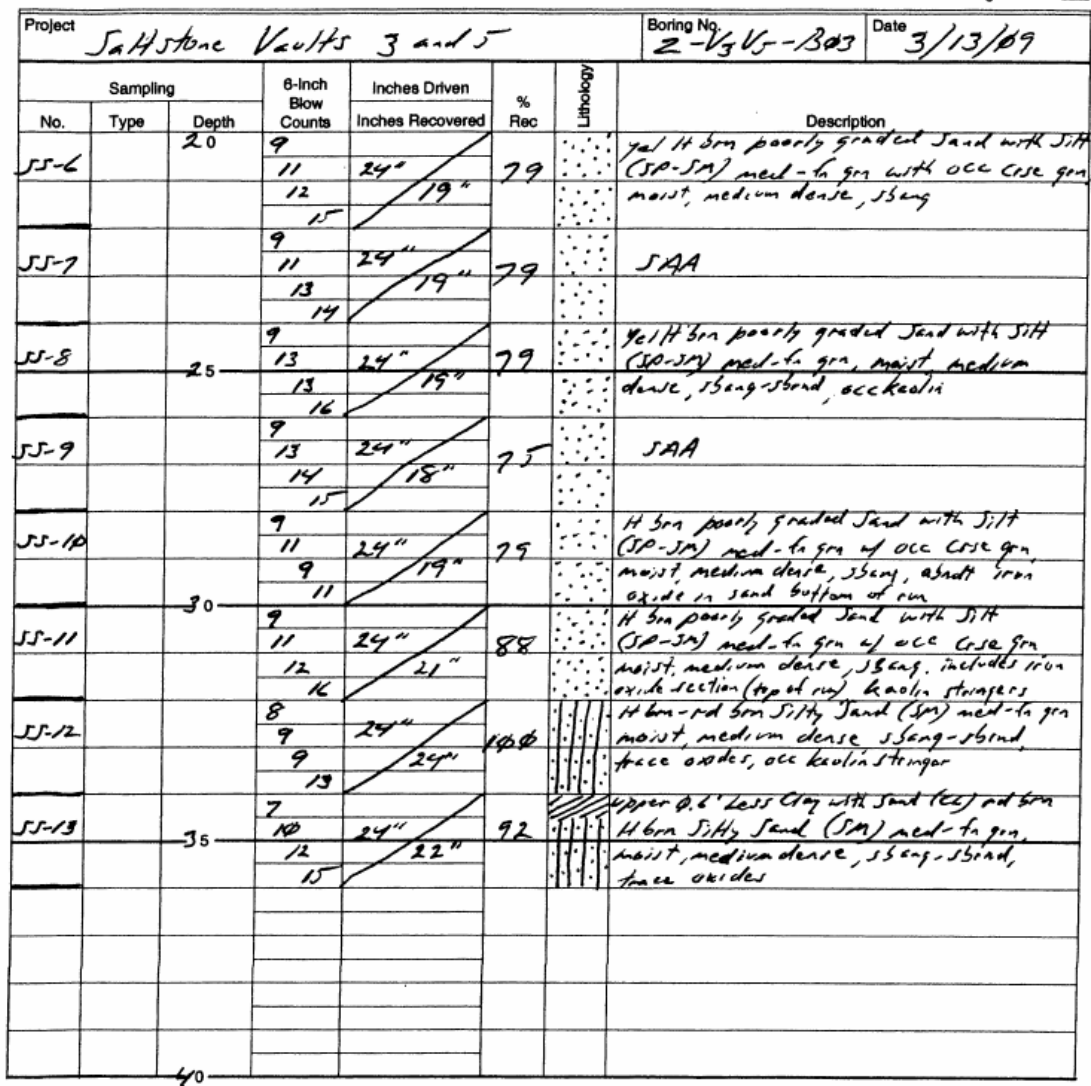 Project
Saltstone Vaults 3 and 5
Boring No.
Z-V3V5-B03
Date
3/13/09
Sampling
6-Inch
Blow
Counts
Inches Driven
Inches Recovered
%
Rec
Lithology
Description
No. Type Depth
20
SS-6
9
11
12
15
24"
19"
79
yel lt brn poorly graded Sand with Silt
(SP-SM) med-fn grn with occ crse grn
moist, medium dense, sbang
SS-7
9
11
13
14
24"
19"
79
SAA
SS-8
25
9
13
13
16
24"
19"
79
yel lt brn poorly graded Sand with Silt
(SP-SM) med-fn grn, moist, medium
dense, sbang-sbrnd, occ kaolin
SS-9
9
13
14
15
24"
18"
75
SAA
SS-10
9
11
9
11
24"
19"
79
lt brn poorly graded Sand with Silt
(SP-SM) med-fn grn w/ occ crse grn,
moist, medium dense, sbang, abndt iron
oxide in sand bottom of run
30
SS-11
9
11
12
16
24"
21"
88
lt brn poorly graded Sand with Silt
(SP-SM) med-fn grn w/ occ crse grn,
moist, medium dense, sbang, includes iron
oxide section (top of run) kaolin stringers
SS-12
8
9
9
13
24"
24"
100
lt brn-rd brn Silty Sand (SM) med-fn grn
moist, medium dense sbang-sbrnd,
trace oxides, occ kaolin stringer
SS-13
35
7
10
12
15
24"
22"
92
upper 0.6' Clay with Sand (CL) rd brn
lt brn Silty Sand (SM) med-fn grn,
moist, medium dense, sbang-sbrnd,
trace oxides
40